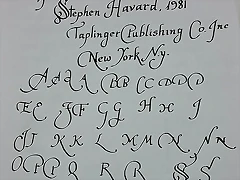 Stephen Havard, 1981
Taplinger Publishing Co. Inc
New York Ny.
A A A A B B C C D D D
E E F F G G H H I
J J K K L M M N N N
O P P Q R R S S